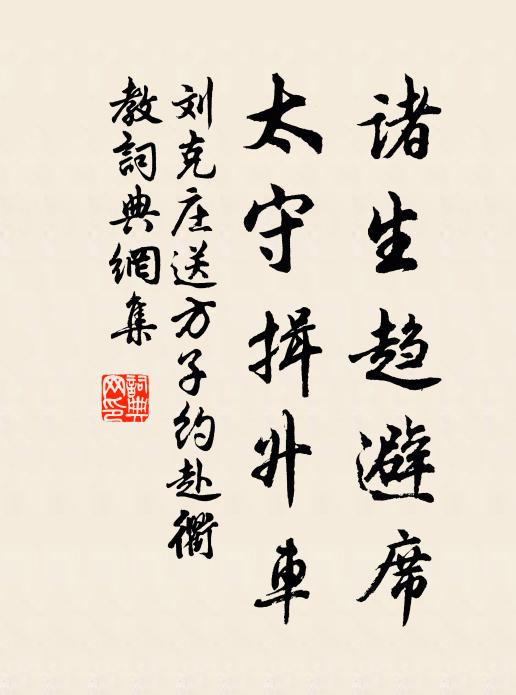 诸生趋避席
太守揖升車
刘克庄送方子约赴衢
教詞典網集
詞典网印